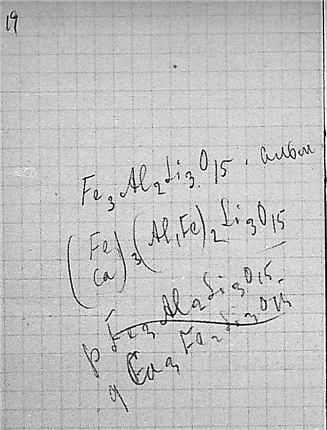 19
Fe₃Al₂Si₃O₁₅.
(Fe Ca)₃(Al,Fe)₂Si₃O₁₅
p Fe₃Al₂Si₃O₁₅
q Ca₃Fe₂Si₃O₁₅